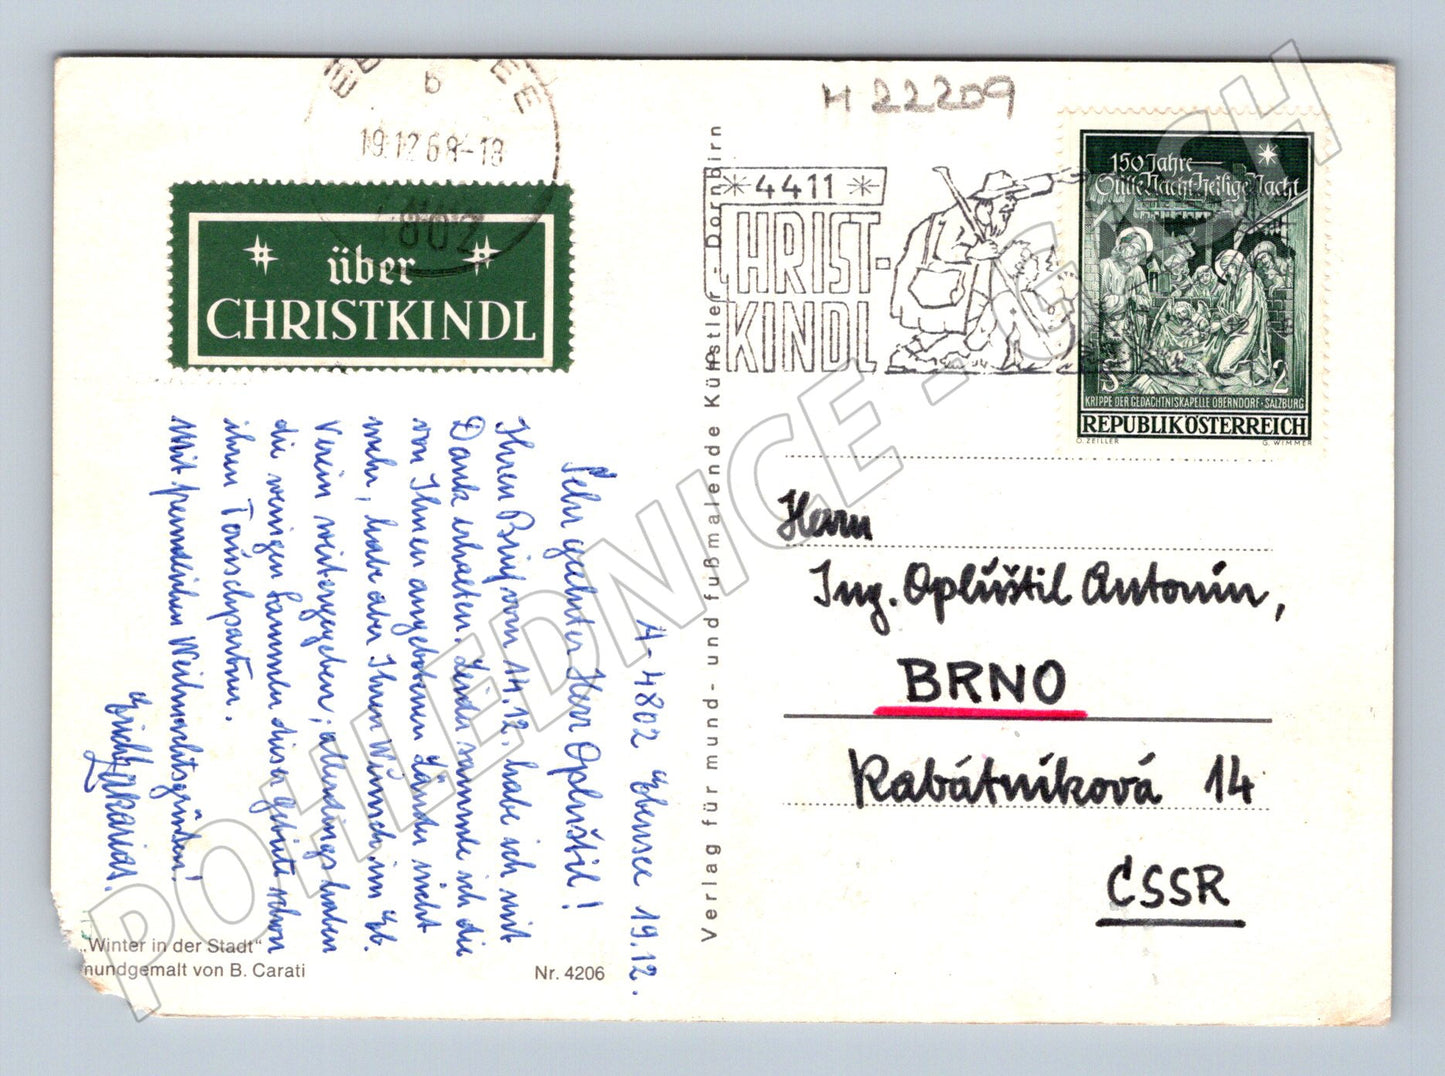 EBENSEE
b
19.12.68-18
4802
über
CHRISTKINDL
H 22209
4411
CHRIST-
KINDL
150 Jahre
Stille Nacht, Heilige Nacht
S 2
KRIPPE DER GEDÄCHTNISKAPELLE OBERNDORF · SALZBURG
REPUBLIK ÖSTERREICH
O. ZEILLER G. WIMMER
A-4802 Ebensee 19.12.
Sehr geehrter Herr Opluštil!
Ihren Brief vom 14.12. habe ich mit
Dank erhalten. Leider sammle ich die
von Ihnen angebotenen Länder nicht
mehr, habe aber Ihren Wunsch im Eb.
Verein weitergegeben; allerdings haben
die wenigen Sammler dieser Gebiete schon
ihren Tauschpartner.
Mit freundlichen Weihnachtsgrüßen!
Erich Zakarias.
Verlag für mund- und fußmalende Künstler - Dornbirn
Herrn
Ing. Oplůštil Antonín,
BRNO
Rabátníková 14
ČSSR
„Winter in der Stadt“
mundgemalt von B. Carati
Nr. 4206
POHLEDNICE - GASH